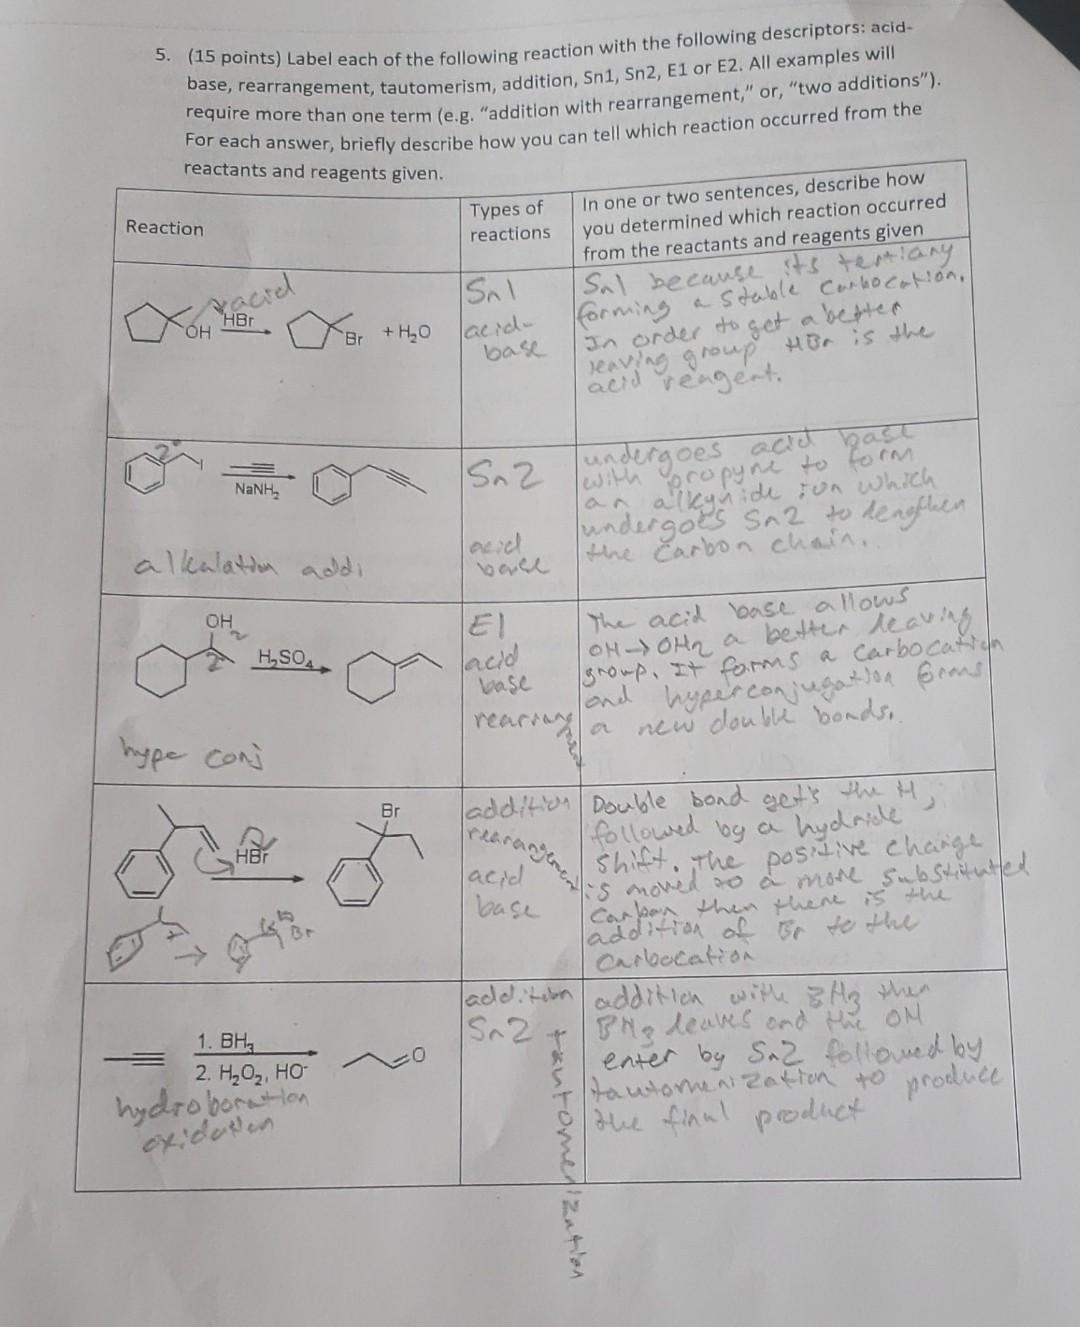 5. (15 points) Label each of the following reaction with the following descriptors: acid-
base, rearrangement, tautomerism, addition, Sn1, Sn2, E1 or E2. All examples will
require more than one term (e.g. “addition with rearrangement,” or, “two additions”).
For each answer, briefly describe how you can tell which reaction occurred from the
reactants and reagents given.
Reaction
Types of
reactions
In one or two sentences, describe how
you determined which reaction occurred
from the reactants and reagents given
acid
OH
HBr
Br
+ H₂O
Sn1
acid-
base
Sn1 because its tertiary
forming a stable carbocation.
In order to get a better
leaving group HBr is the
acid reagent.
2°
NaNH₂
alkalation addi
Sn2
acid
base
undergoes acid base
with propyne to form
an alkynide ion which
undergoes Sn2 to lengthen
the carbon chain.
OH
2
H₂SO₄
hype conj
E1
acid
base
rearrangement
The acid base allows
OH→OH2 a better leaving
group. It forms a carbocation
and hyperconjugation forms
a new double bonds.
HBr
Br
Br
addition
rearangement
acid
base
Double bond gets the H,
followed by a hydride
shift. The positive charge
is moved to a more substituted
Carbon then there is the
addition of Br to the
carbocation
1. BH₃
2. H₂O₂, HO⁻
O
hydroboration
oxidation
addition
Sn2
+ tautomerization
addition with BH3 then
BH3 leaves and the OH
enter by Sn2 followed by
tautomerization to produce
the final product